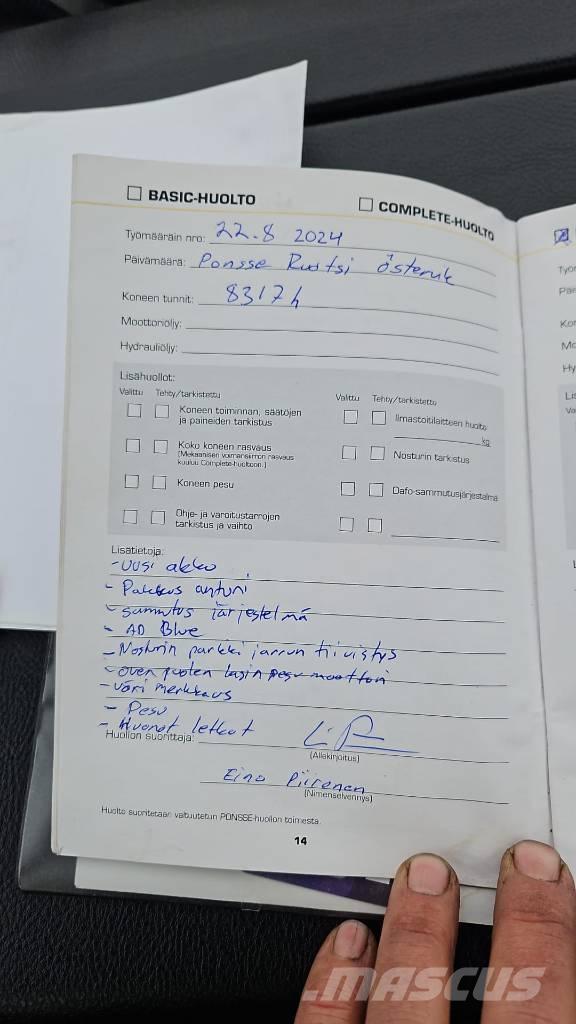 BASIC-HUOLTO
COMPLETE-HUOLTO
Työmääräin nro: 22.8 2024
Päivämäärä: Ponsse Ruotsi Österuk
Koneen tunnit: 8317 h
Moottoriöljy:
Hydrauliöljy:
Lisähuollot:
Valittu Tehty/tarkistettu
Koneen toiminnan, säätöjen
ja paineiden tarkistus
Koko koneen rasvaus
(Mekaanisen voimansiirron rasvaus
kuuluu Complete-huoltoon.)
Koneen pesu
Ohje- ja varoitustarrojen
tarkistus ja vaihto
Valittu Tehty/tarkistettu
Ilmastointilaitteen huolto
kg
Nosturin tarkistus
Dafo-sammutusjärjestelmä
Lisätietoja:
- uusi akku
- Pakkas anturi
- Sammutus järjestelmä
- AD Blue
- Nosturin parkki jarrun tiivistys
- oven puolen lasin pesu moottori
- väri merkkaus
- Pesu
- Huonot letkut
Huollon suorittaja:
(Allekirjoitus)
Eino Piirenen
(Nimenselvennys)
Huolto suoritetaan valtuutetun PONSSE-huollon toimesta.
14
MASCUS